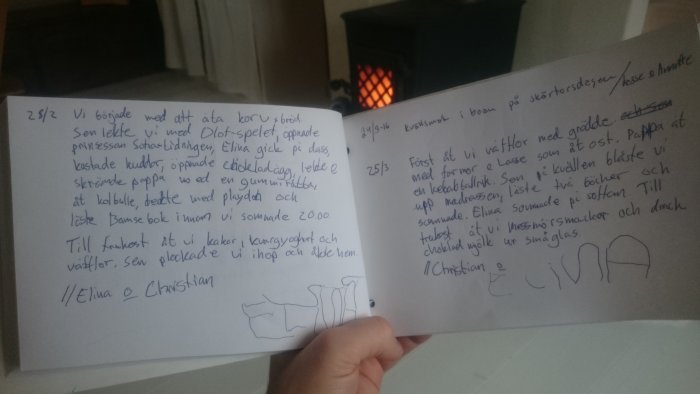 25/2 Vi började med att äta korv o bröd.
Sen lekte vi med Plot-spelet, öppnade
prinsessan Sofia-tidningen, Elina gick på dass,
kastade kuddar, öppnade chokladägg, lekte o
skrämde pappa med en gummiråtta,
åt kolbulle, med playdoh och
läste Bamsebok innan vi somnade 20.00.
Till frukost åt vi kakor, kvargyoghurt och
våfflor. Sen plockade vi ihop och åkte hem.
//Elina o Christian
ELINA
24/3-16 kvällsmat i boan på skärtorsdagen / Lasse o Annette
25/3 Först åt vi våfflor med grädde
med farmor o Lasse som åt ost. Pappa åt
en kebabtallrik. Sen på kvällen blåste vi
upp madrassen, läste två böcher och
somnade. Elina somnade på soffan. Till
frukost åt vi messmörsmackor och drack
choklad mjölk ur småglas
//Christian o
ELINA